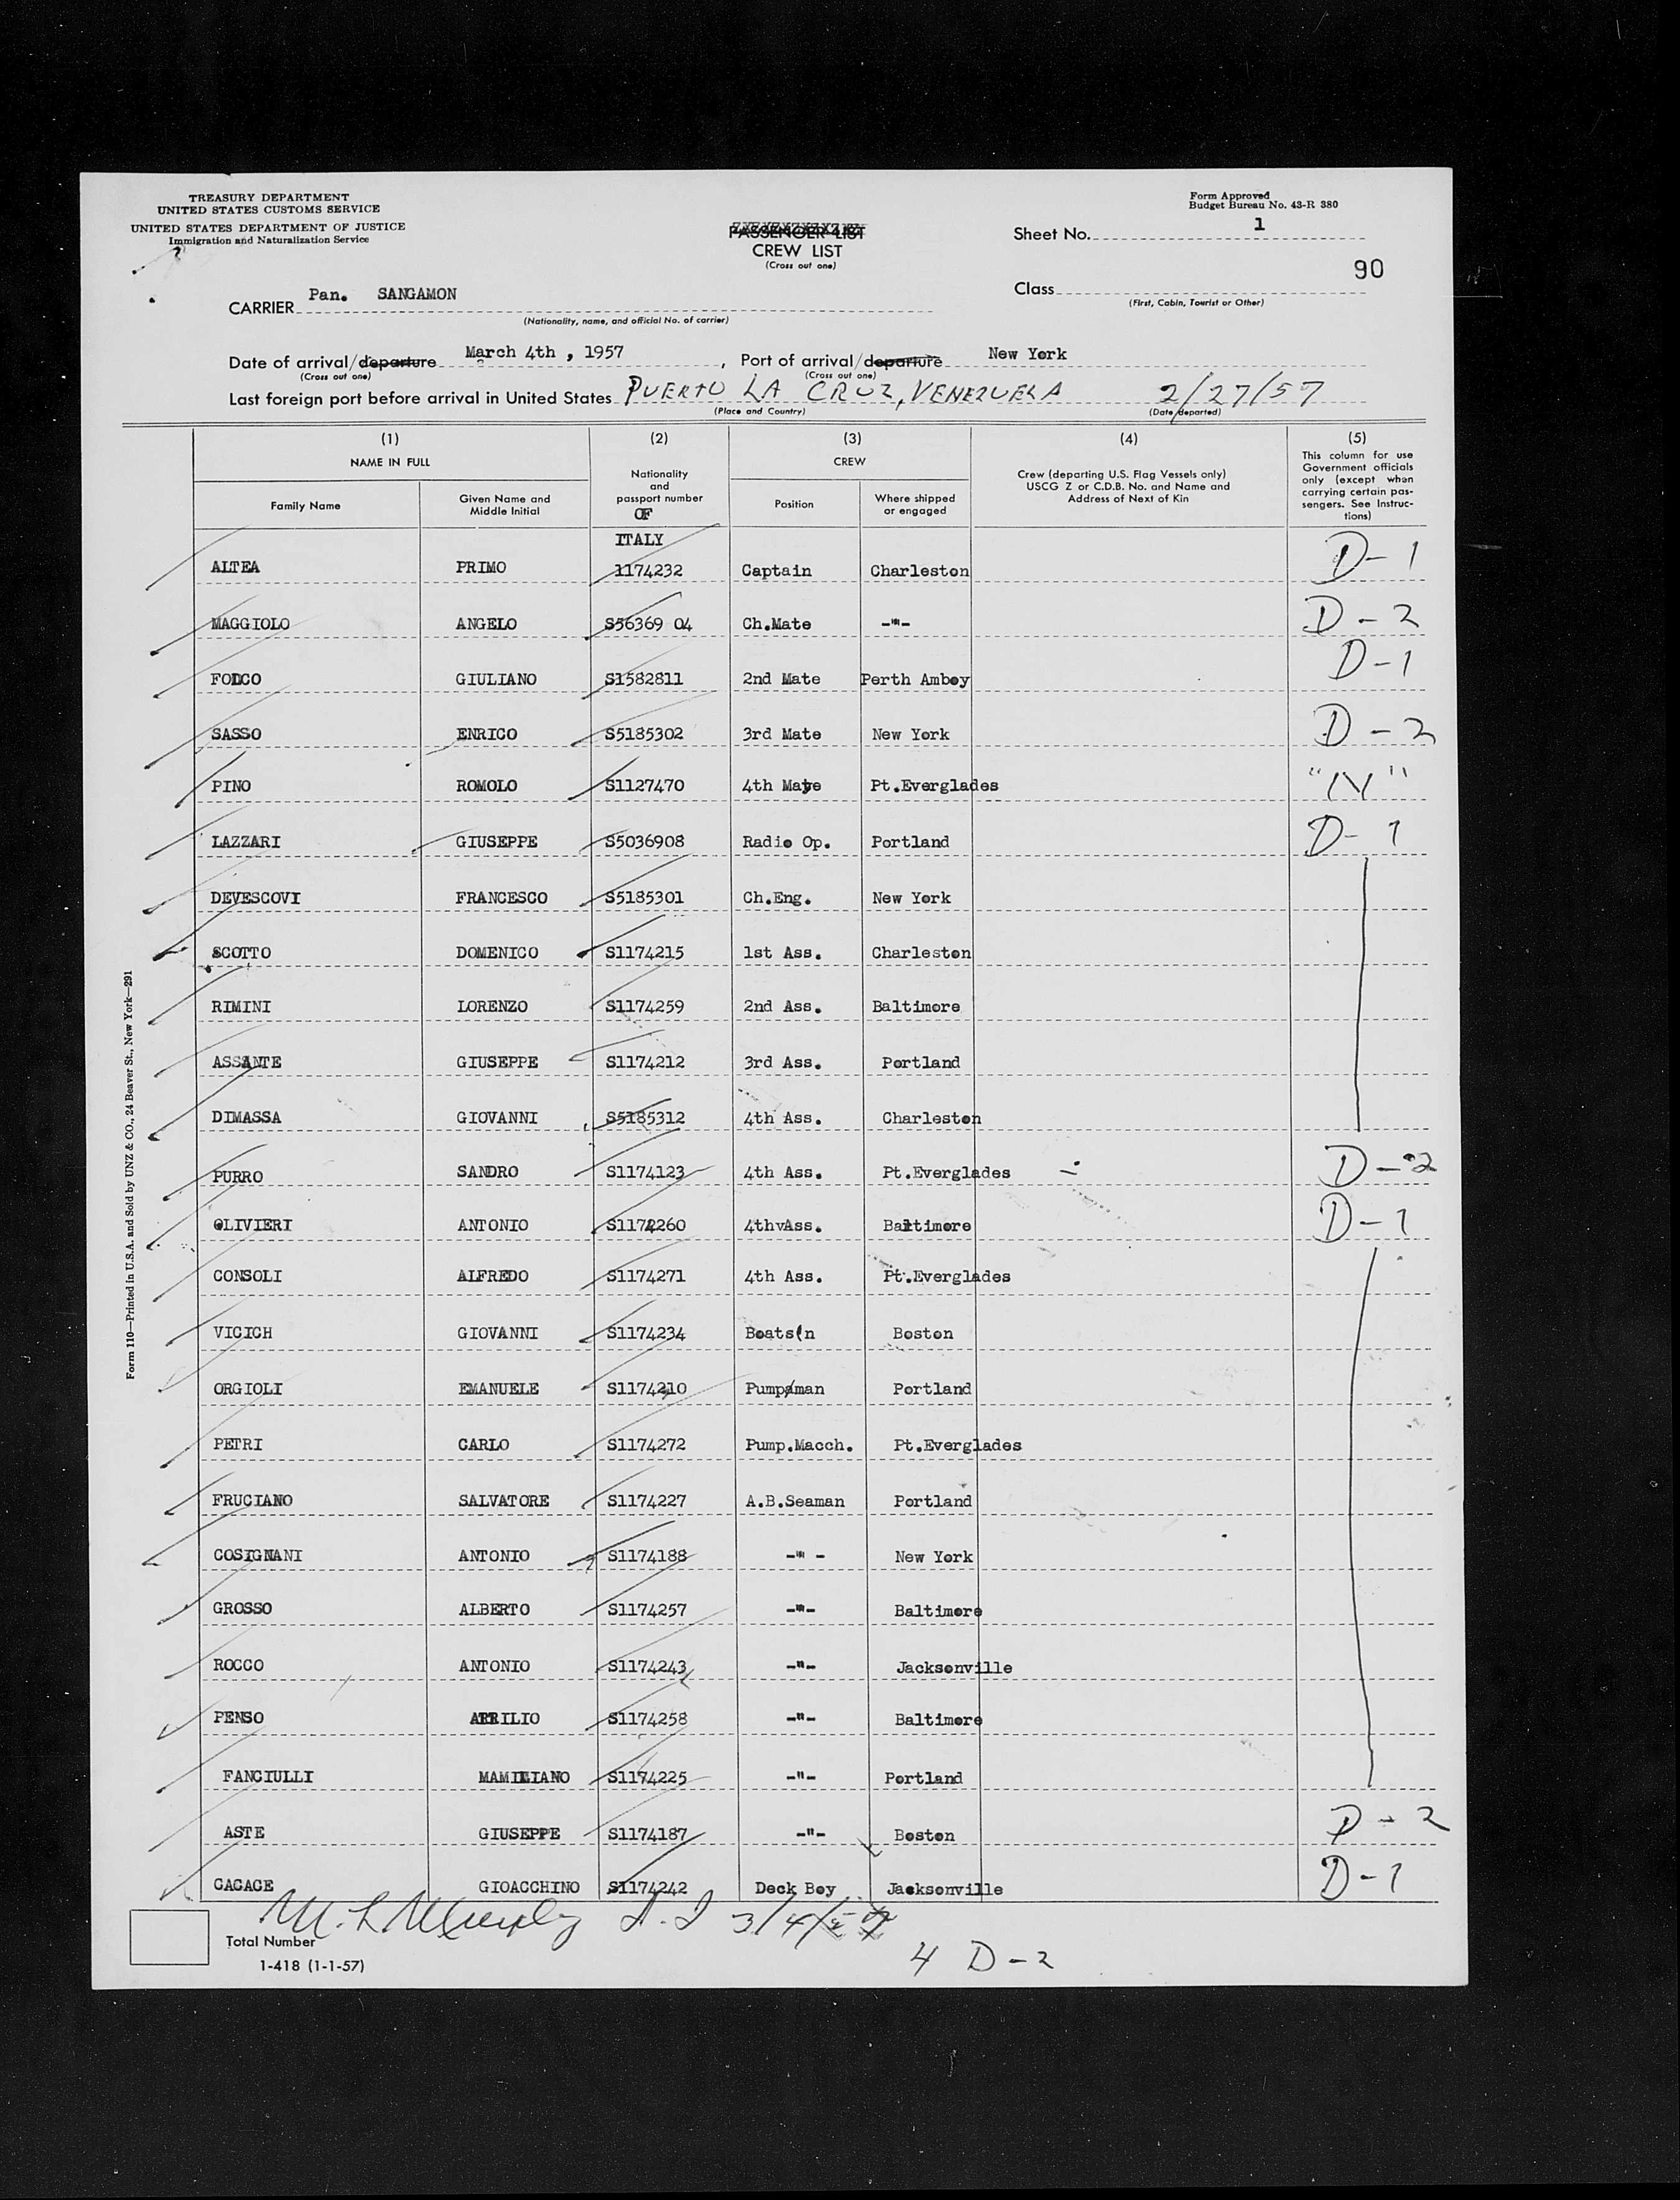 TREASURY DEPARTMENT
UNITED STATES CUSTOMS SERVICE
UNITED STATES DEPARTMENT OF JUSTICE
Immigration and Naturalization Service
Form Approved
Budget Bureau No. 43-R 380
PASSENGER LIST
CREW LIST
(Cross out one)
Sheet No. 1
90
Class
(First, Cabin, Tourist or Other)
CARRIER Pan. SANGAMON
(Nationality, name, and official No. of carrier)
Date of arrival/departure March 4th , 1957 , Port of arrival/departure New York
(Cross out one) (Cross out one)
Last foreign port before arrival in United States PUERTO LA CRUZ, VENEZUELA 2/27/57
(Place and Country) (Date departed)
(1) (2) (3) (4) (5)
NAME IN FULL
Family Name
Given Name and Middle Initial
Nationality and passport number
OF
CREW
Position
Where shipped or engaged
Crew (departing U.S. Flag Vessels only)
USCG Z or C.D.B. No. and Name and
Address of Next of Kin
This column for use
Government officials
only (except when
carrying certain pas-
sengers. See Instruc-
tions)
ITALY
ALTEA PRIMO 1174232 Captain Charleston D-1
MAGGIOLO ANGELO S56369 04 Ch.Mate -"- D-2
FODCO GIULIANO S1582811 2nd Mate Perth Amboy D-1
SASSO ENRICO S5185302 3rd Mate New York D-2
PINO ROMOLO S1127470 4th Mate Pt.Everglades "N"
LAZZARI GIUSEPPE S5036908 Radio Op. Portland D-1
DEVESCOVI FRANCESCO S5185301 Ch.Eng. New York
SCOTTO DOMENICO S1174215 1st Ass. Charleston
RIMINI LORENZO S1174259 2nd Ass. Baltimore
ASSANTE GIUSEPPE S1174212 3rd Ass. Portland
DIMASSA GIOVANNI S5185312 4th Ass. Charleston
PURRO SANDRO S1174123 4th Ass. Pt.Everglades D-2
OLIVIERI ANTONIO S1172260 4thvAss. Baltimore D-1
CONSOLI ALFREDO S1174271 4th Ass. Pt.Everglades
VICICH GIOVANNI S1174234 Boats(n Boston
ORGIOLI EMANUELE S1174210 Pumpman Portland
PETRI CARLO S1174272 Pump.Macch. Pt.Everglades
FRUCIANO SALVATORE S1174227 A.B.Seaman Portland
COSIGNANI ANTONIO S1174188 -" - New York
GROSSO ALBERTO S1174257 -"- Baltimore
ROCCO ANTONIO S1174243 -"- Jacksonville
PENSO ATTILIO S1174258 -"- Baltimore
FANCIULLI MAMILIANO S1174225 -"- Portland
ASTE GIUSEPPE S1174187 -"- Boston D-2
CACACE GIOACCHINO S1174242 Deck Boy Jacksonville D-1
3/4/57
Total Number
4 D-2
1-418 (1-1-57)
Form 110—Printed in U.S.A. and Sold by UNZ & CO., 24 Beaver St., New York—291